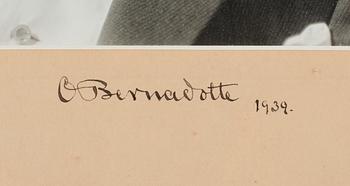 O Bernadotte 1939.